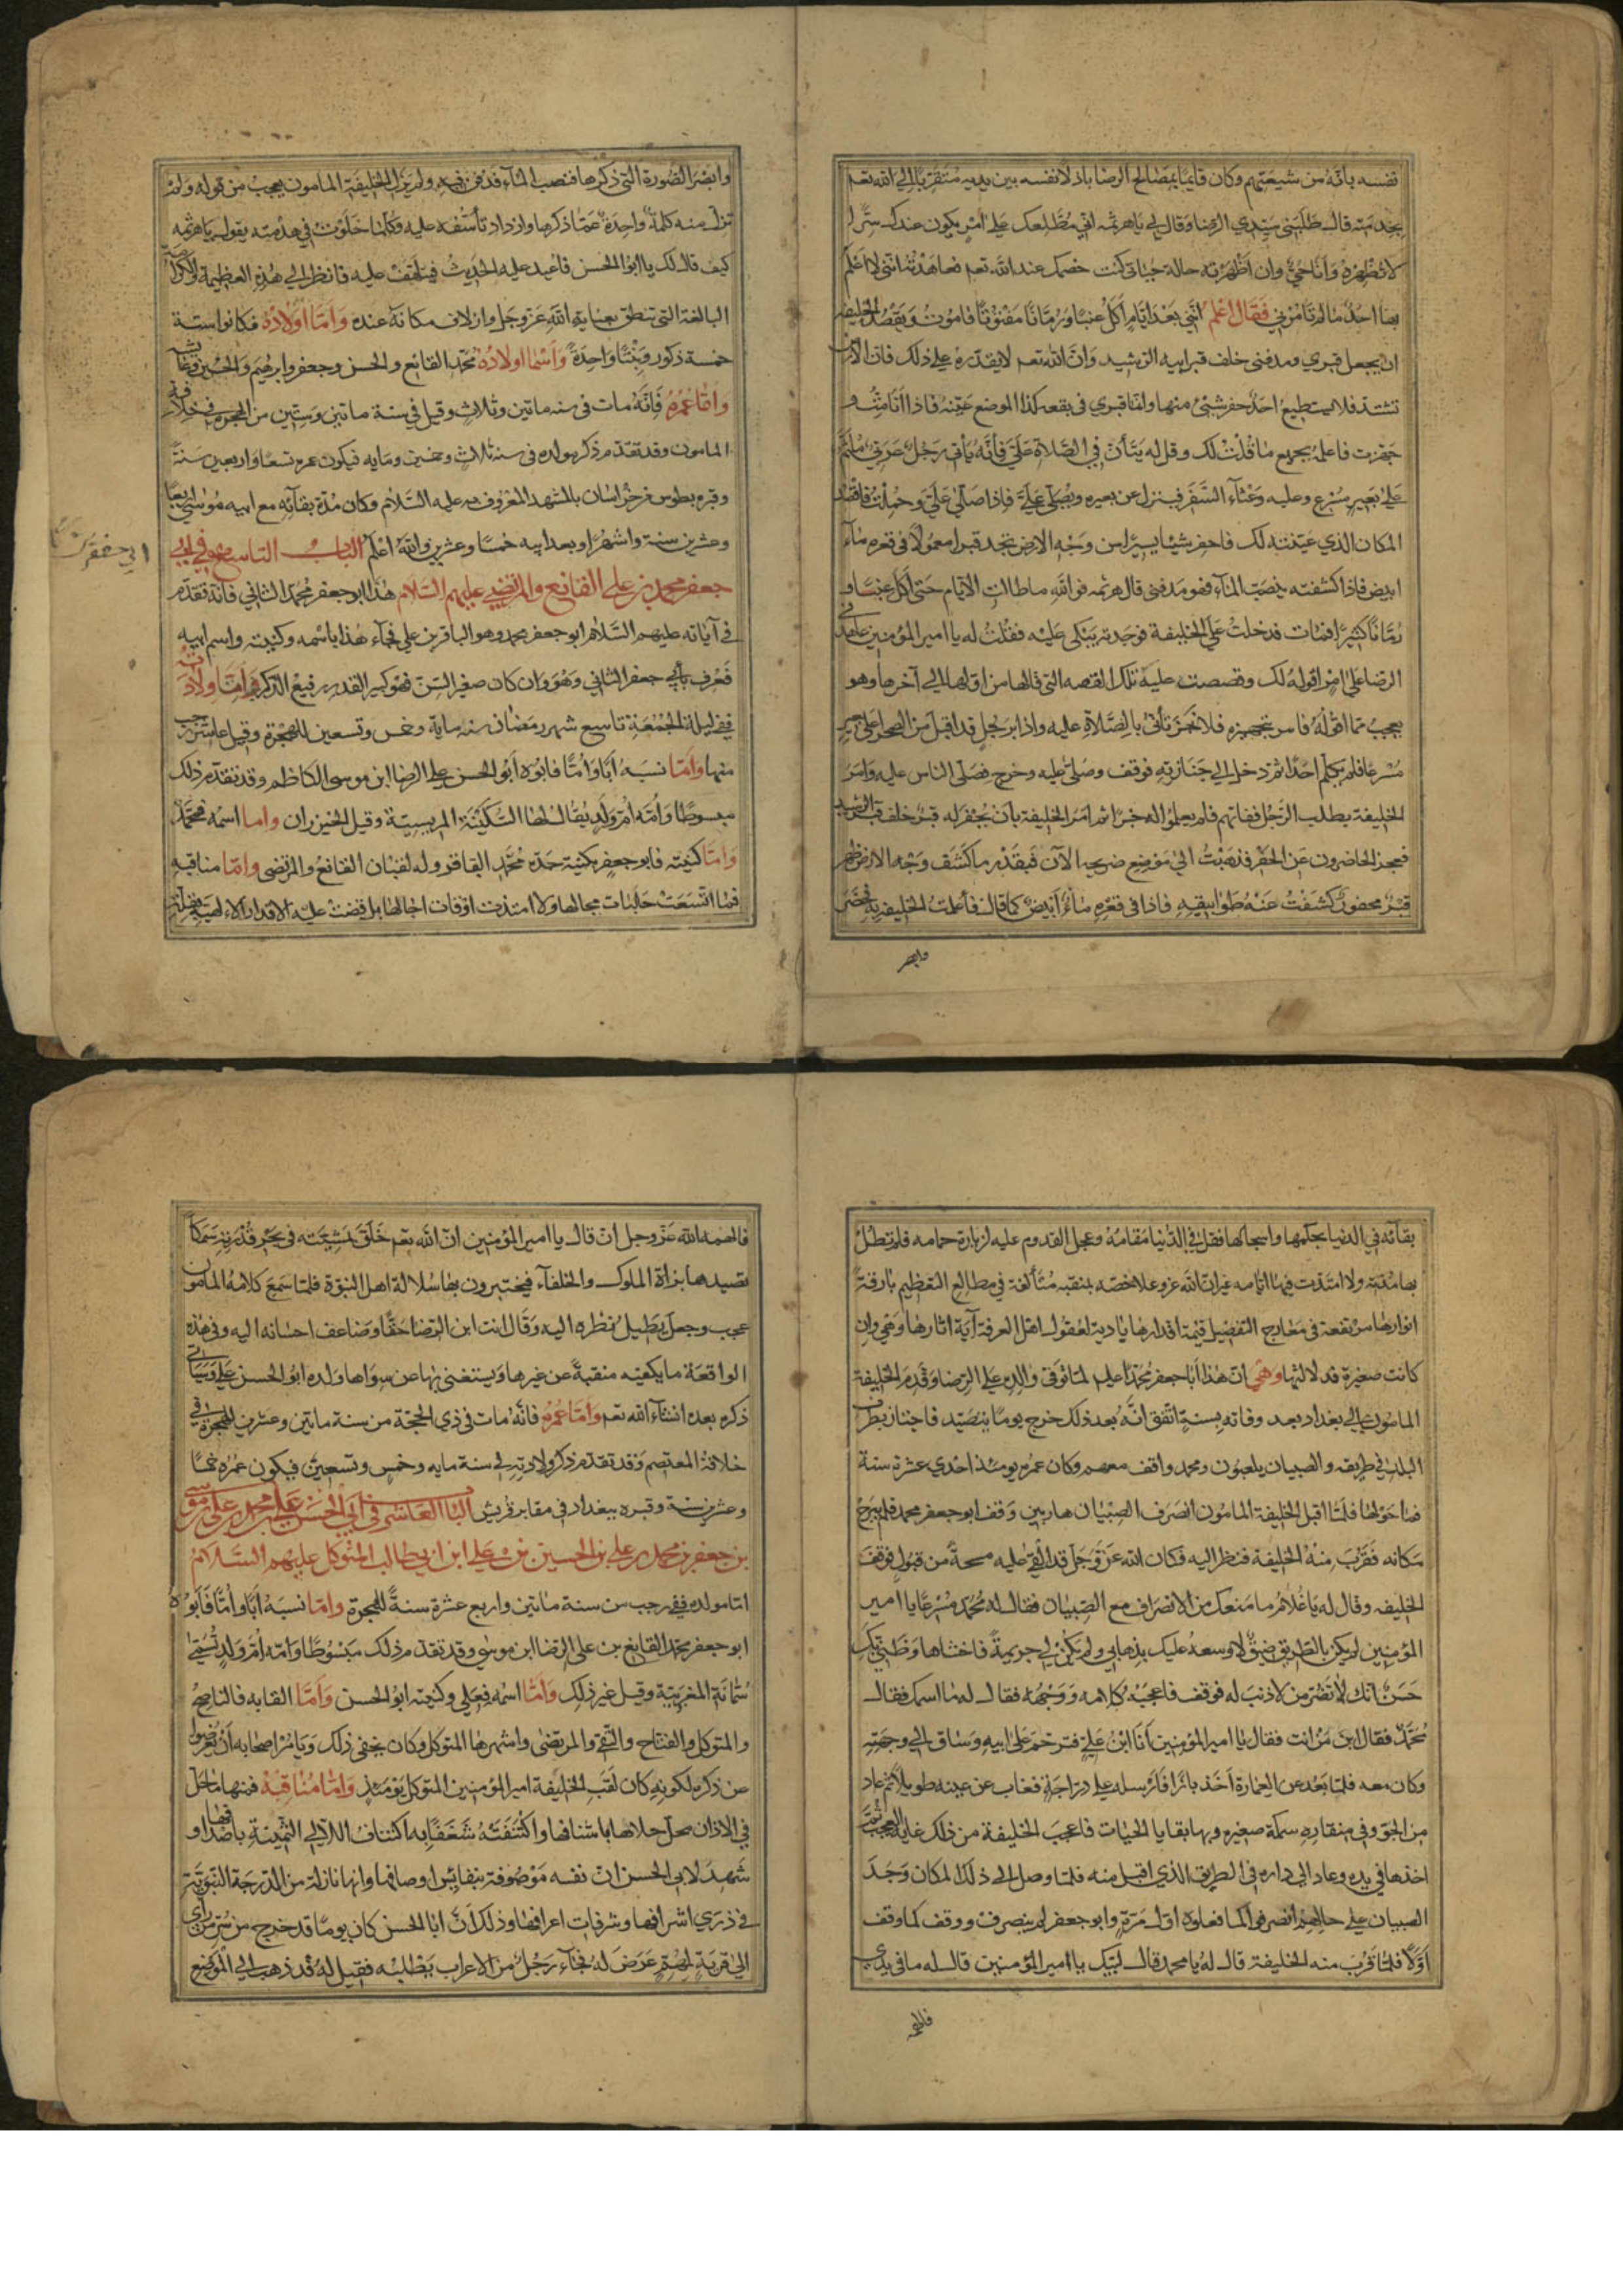 نفسه بانه من شيعتهم وكان قايما بمصالح الرضا باذلا نفسه بين يديه متقربا الى الله تعم
بخدمته قال طلبنى سيدي الرضا وقال لي ياهرثمه اني مطلعك على امر يكون عندك سرا
لا تظهره وانا حي وان اظهرته حالة حياتى كنت خصمك عند الله تعم فعاهدته اننى لا اعلم
بها احدا مالم تامرني فقال اعلم اننى بعد ايام اكل عنبا ورمانا مفتوتا فاموت ويقصد الخليفة
ان يجعل قبري ومدفنى خلف قبر ابيه الرشيد وان الله تعم لا يقدره على ذلك فان الارض
تشتد فلا يستطيع احد حفر شئ منها وانما قبري فى بقعه كذا الموضع عينه فاذا انا مت و
جهزت فاعلمه بجميع ما قلت لك وقل له يتأن فى الصلاة علي فانه يأتى رجل عربي ملثم
على بعير مسرع وعليه وعثاء السفر فينزل عن بعيره ويصلى علي فاذا صلى علي وحملت فاقصد
المكان الذي عينته لك فاحفر شيئا يسيرا من وجه الارض تجد قبرا معمولا فى قعره ماء
ابيض فاذا كشفته ينضب الماء فهو مدفنى قال هرثمه فوالله ما طالت الايام حتى اكل عنبا و
رمانا كثيرا فمات فدخلت على الخليفة فوجدته يبكى عليه فقلت له يا امير المؤمنين عاهدنى
الرضا على امر اقوله لك وقصصت عليه تلك القصه التى قالها من اولها الى آخرها وهو
يعجب مما اقوله فامر بتجهيزه فلما تجهز تأنى بالصلاة عليه واذا برجل قد اقبل من الصحرا على بعير
مسرعا فلم يكلم احدا ثم دخل الى جنازته فوقف وصلى عليه وخرج فصلى الناس عليه وامر
الخليفة بطلب الرجل ففاتهم فلم يعلموا له خبرا ثم امر الخليفة بان يحفر له قبر خلف قبر الرشيد
فعجز الحاضرون عن الحفر فذهبت الى موضع ضريحه الآن فبقدر ما كشف وجه الارض ظهر
قبر محفور كشفت عنه طوابيقه فاذا فى قعره ماء ابيض كما قال فأعلمت الخليفة به فحضر
وابصر
وابصر الصورة التى ذكرها فنضب الماء فدفن فيه ولم يزل الخليفة المامون يعجب من قوله ولم
تزل منه كلمة واحدة عما ذكرها وازداد تأسفه عليه وكلما خلوت فى خدمته يقول ياهرثمه
كيف قال لك يا ابوالحسن فاعيد عليه الحديث فيتلهف عليه فانظر الى هذه العظيمة والكرامة
البالغة التى تنطق بعناية الله عز وجل وازلاف مكانة عنده واما اولاده فكانوا ستة
خمسة ذكور وبنتا واحدة واسما اولاده محمد القانع والحسن وجعفر وابرهيم والحسين وعايشه
واما عمره فانه مات فى سنه ماتين وثلاث وقيل فى سنة ماتين وستين من الهجرة فى خلافة
المامون وقد تقدم ذكر مولده فى سنة ثلاث وخمسين ومايه فيكون عمره تسعا واربعين سنة
وقبره بطوس من خراسان بالمشهد المعروف به عليه السلام وكان مدة بقائه مع ابيه موسى اربعا
وعشرين سنة واشهرا وبعد ابيه خمسا وعشرين والله اعلم الباب التاسع فى ابي
جعفر محمد بن علي القانع والمرتضي عليهم السلام هذا ابو جعفر محمد الثاني فانه تقدم
فى آبائه عليهم السلام ابو جعفر محمد وهو الباقر بن علي فجاء هذا باسمه وكنيته واسم ابيه
فعرف بأبي جعفر الثانى وهو وان كان صغير السن فهو كبير القدر رفيع الذكر واما ولادته
ففي ليلة الجمعة تاسع شهر رمضان سنه مايه وخمس وتسعين للهجرة وقيل عاشر رجب
منها واما نسبه ابا واما فابوه ابو الحسن علي الرضا ابن موسى الكاظم وقد تقدم ذلك
مبسوطا وامه ام ولد يقال لها السكينة المريسية وقيل الخيزران واما اسمه فمحمد
واما كنيته فابو جعفر بكنية جده محمد الباقر وله لقبان القانع والمرتضى واما مناقبه
فما اتسعت حلبات مجالها ولا امتدت اوقات اجالها بل قضت عليه الاقدار الالهيه بقلة
بقائه في الدنيا بحكمها واسجالها فقل في الدنيا مقامه وعجل القدوم عليه لزيارة حمامه فلم تطل
بها مدته ولا امتدت فيها ايامه غير ان الله عز وعلا خصه بمنقبه متألقة في مطالع التعظيم بارقة
انوارها مرتفعة فى معارج التفضيل قيمة اقدارها بادية لعقول اهل المعرفة آية اثارها وهي وان
كانت صغيرة فدلالتها وهي ان هذا ابا جعفر محمد بن علي لما توفى والده علي الرضا وقدم الخليفة
المامون الى بغداد بعد وفاته بسنة اتفق انه بعد ذلك خرج يوما يتصيد فاجتاز بطرف
البلد في طريقه والصبيان يلعبون ومحمد واقف معهم وكان عمره يومئذ احدي عشرة سنة
فما حولها فلما اقبل الخليفة المامون انصرف الصبيان هاربين ووقف ابو جعفر محمد فلم يبرح
مكانه فقرب منه الخليفة فنظر اليه فكان الله عز وجل قد القى عليه مسحة من قبول فوقف
الخليفه وقال له يا غلام ما منعك من الانصراف مع الصبيان فقال له محمد مسرعا يا امير
المؤمنين لم يكن بالطريق ضيق لاوسعه عليك بذهابي ولم يكن لي جريمة فاخشاها وظني بك
حسن انك لا تضر من لا ذنب له فوقف فاعجبه كلامه ووجهه فقال له ما اسمك فقال
محمد فقال ابن من انت فقال يا امير المؤمنين انا ابن علي فترحم على ابيه وساق الى وجهته
وكان معه بزاة فلما بعد عن العمارة اخذ بازا فارسله على دراجة فغاب عن عينه طويلا ثم عاد
من الجو وفى منقاره سمكة صغيره وبها بقايا الحيات فاعجب الخليفة من ذلك غاية العجب ثم
اخذها في يده وعاد الى داره فى الطريق الذي اقبل منه فلما وصل الى ذلك المكان وجد
الصبيان على حالهم انصرفوا كما فعلوه اول مرة وابو جعفر لم ينصرف ووقف كما وقف
اولا فلما قرب منه الخليفة قال له يا محمد قال لبيك يا امير المؤمنين قال له ما فى يدي
فالهمه
فالهمه الله عز وجل ان قال يا امير المؤمنين ان الله تعم خلق بمشيئته فى بحر قدرته سمكا
تصيدها بزاة الملوك والخلفآء فيختبرون بها سلالة اهل النبوة فلما سمع كلامه المامون
عجب وجعل يطيل نظره اليه وقال انت ابن الرضا حقا وضاعف احسانه اليه وفى هذه
الواقعة ما يكفيه منقبة عن غيرها ويستغنى بها عن سواها ولده ابو الحسن علي وسيأتى
ذكره بعده انشآء الله تعم واما عمره فانه مات في ذي الحجة من سنة ماتين وعشرين للهجرة في
خلافة المعتصم وقد تقدم ذكر ولادته فى سنة مايه وخمس وتسعين فيكون عمره خمسا
وعشرين سنة وقبره ببغداد فى مقابر قريش الباب العاشر فى ابي الحسن علي بن محمد بن علي بن موسى
بن جعفر بن محمد بن علي بن الحسين بن علي ابن ابي طالب المتوكل عليهم السلام
اما مولده ففي رجب من سنة ماتين واربع عشرة سنة للهجرة واما نسبه ابا واما فابوه
ابو جعفر محمد القانع بن علي الرضا ابن موسى وقد تقدم ذلك مبسوطا وامه ام ولد تسمى
سمانة المغربية وقيل غير ذلك واما اسمه فعلي وكنيته ابو الحسن واما القابه فالناصح
والمتوكل والفتاح والنقي والمرتضى واشهرها المتوكل وكان يخفى ذلك ويامر اصحابه ان يعرضوا
عن ذكره لكونه كان لقب الخليفة امير المؤمنين المتوكل يومئذ واما مناقبه فمنها ما حل
في الاذان محل حلاها باشنافها واكتنفته شغفا به اكتناف اللآلي الثمينة باصدافها و
شهد لابى الحسن ان نفسه موصوفة بنفائس اوصافها وانها نازلة من الدرجة النبوية
فى ذرى اشرافها وشرفات اعرافها وذلك ان ابا الحسن كان يوما قد خرج من سر من رأى
الى قرية لمهم عرض له فجآء رجل من الاعراب يطلبه فقيل له قد ذهب الى الموضع